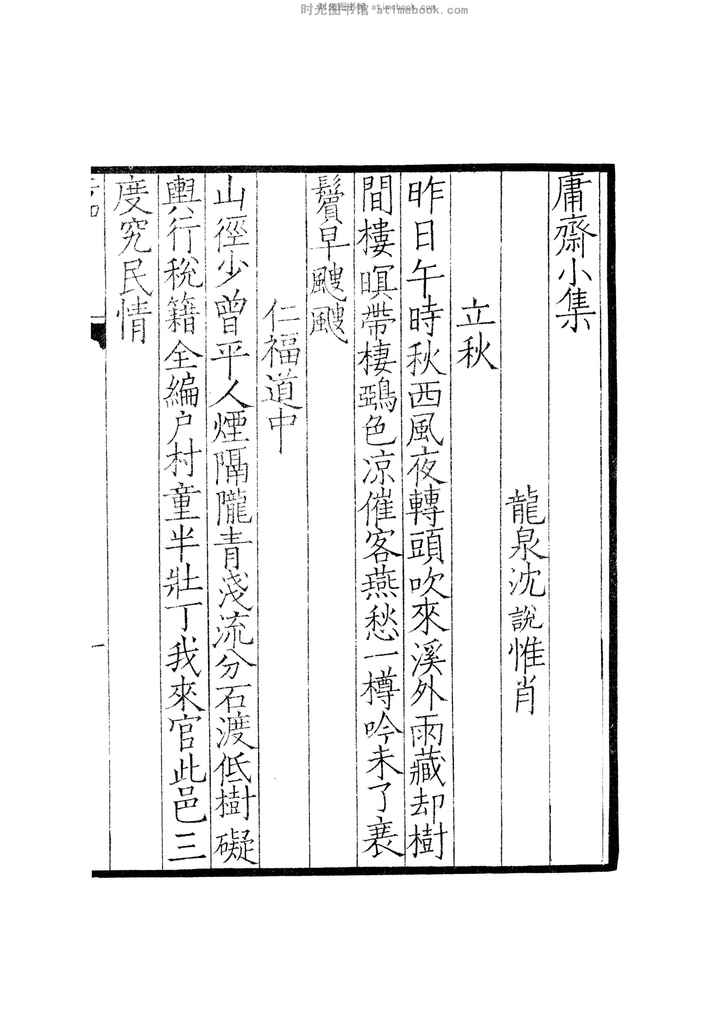 时光图书馆 atimebook.com
庸齋小集
龍泉沈說惟肖
立秋
昨日午時秋西風夜轉頭吹來溪外雨藏却樹
間樓暝帶棲鵶色凉催客燕愁一樽吟未了衰
鬢早颼颼
仁福道中
山徑少曾平人煙隔隴青淺流分石渡低樹礙
輿行稅籍全編户村童半壯丁我來官此邑三
度究民情
一